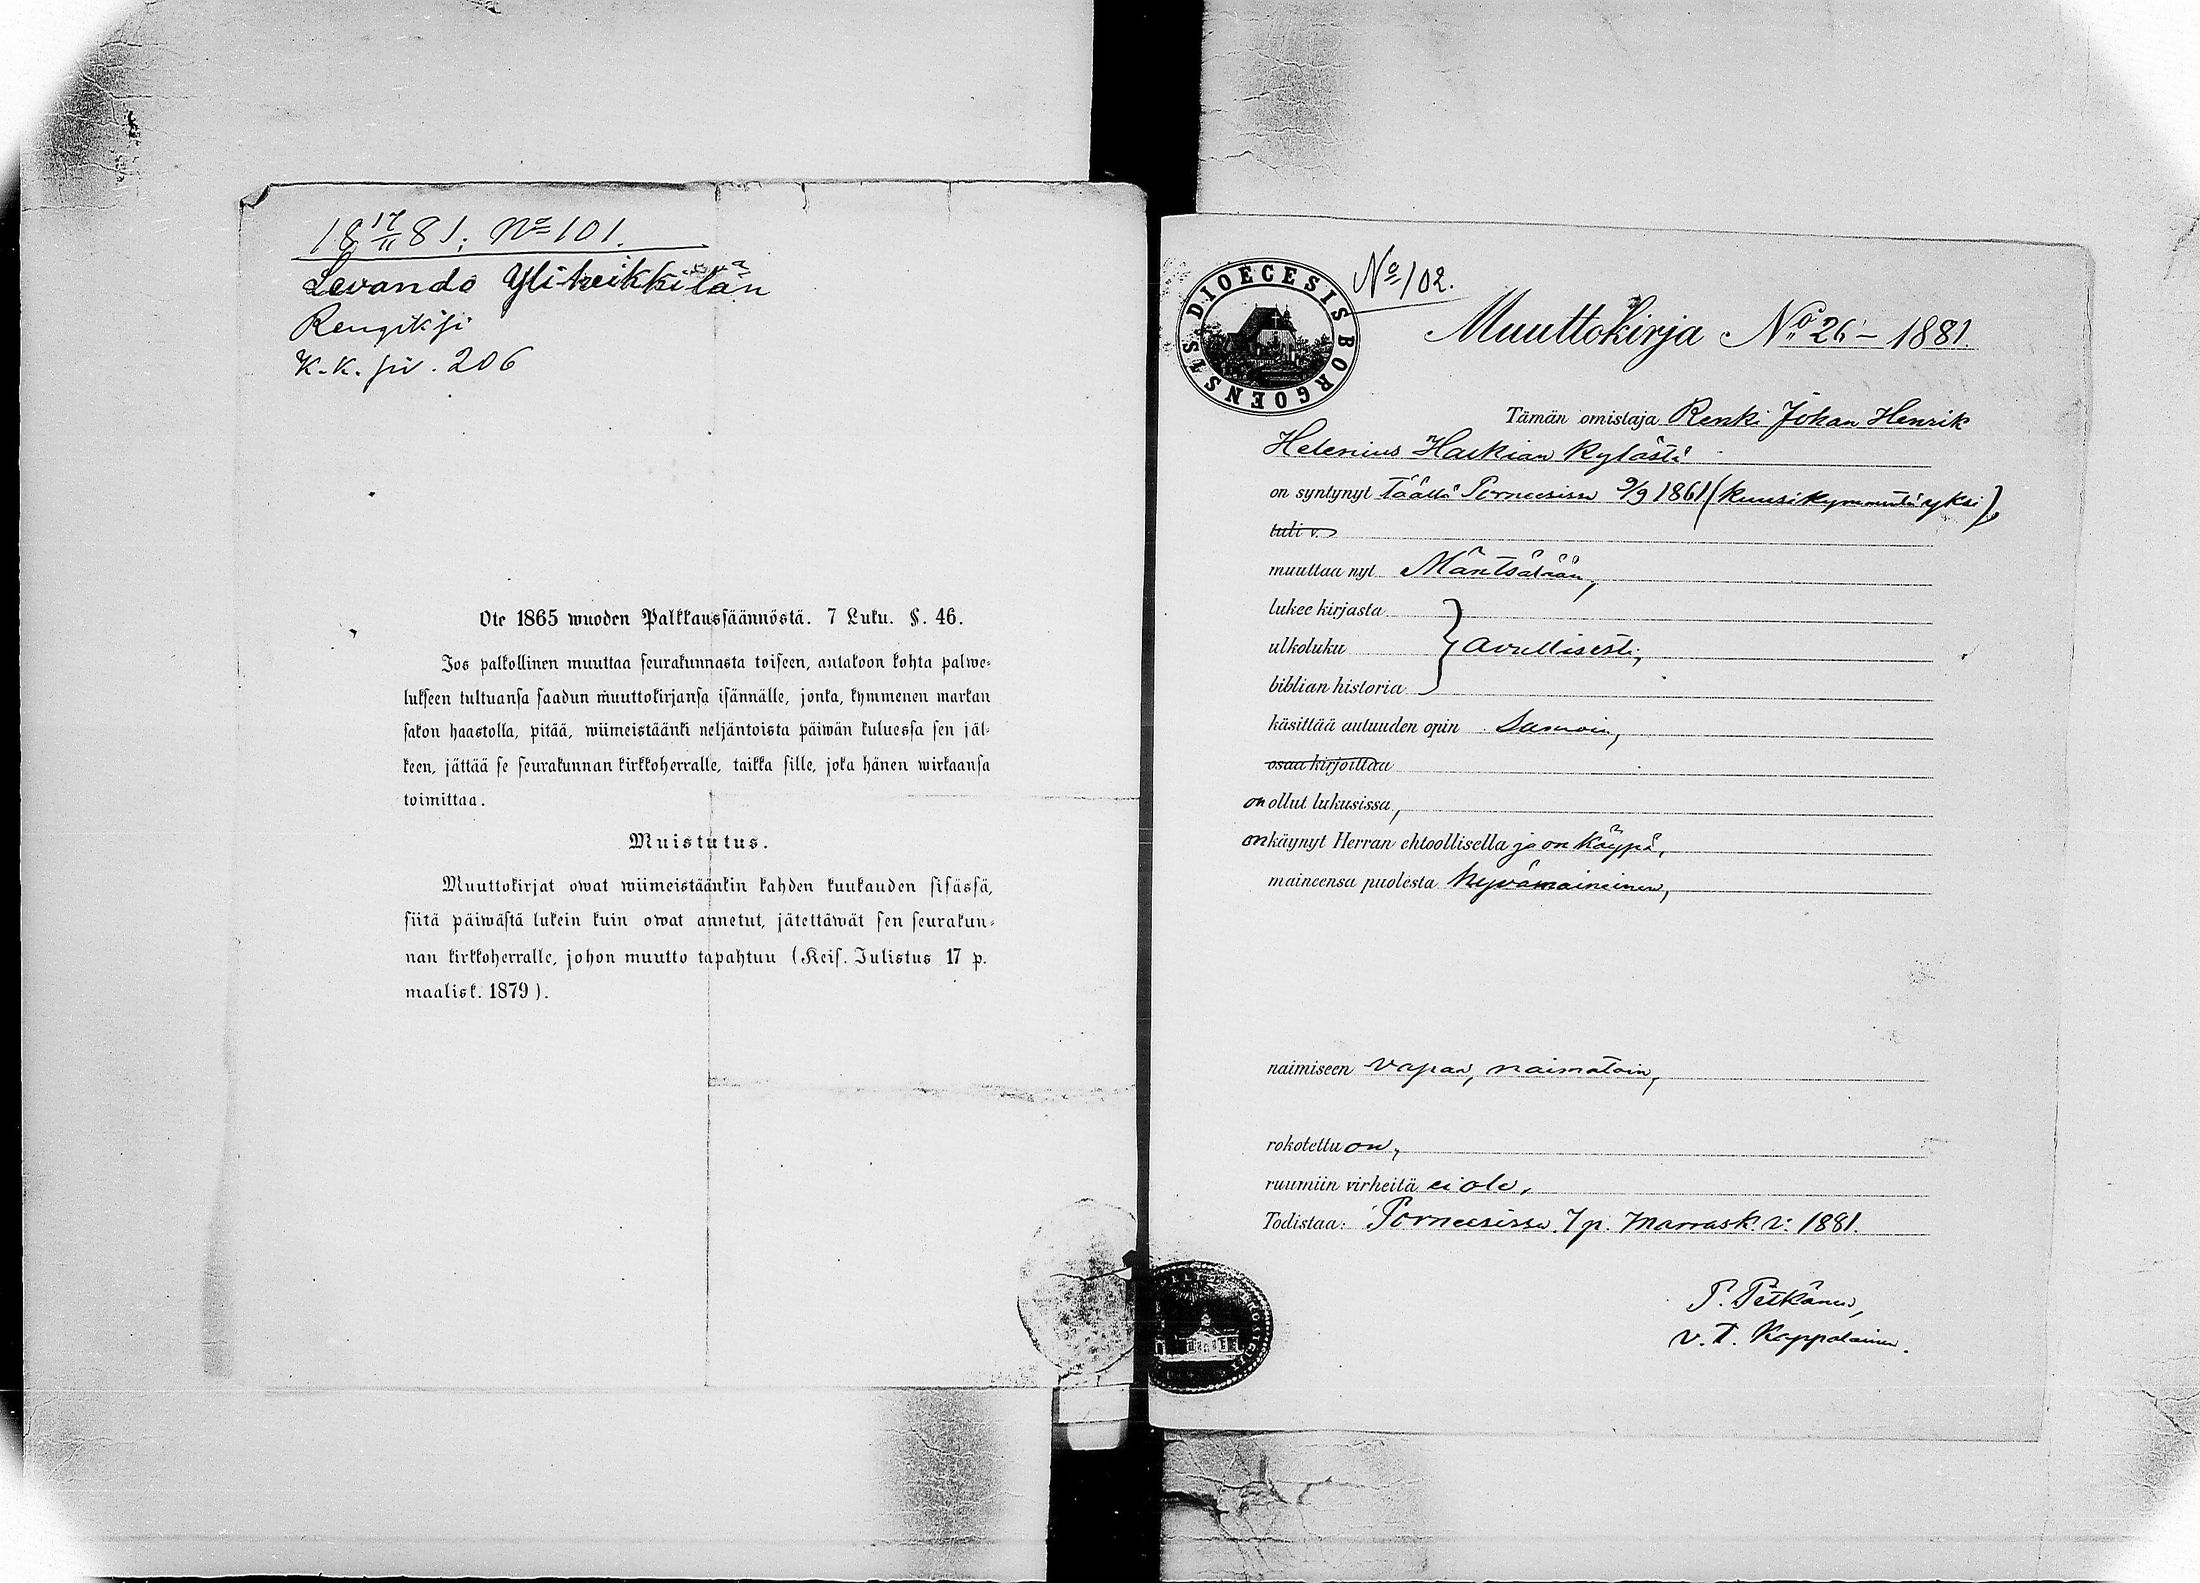 18 17/11 81; No 101.
Levando Yliheikkilän
Rengiksi
K.K. siv. 206
Ote 1865 wuoden Palkkaussäännöstä. 7 Luku. §. 46.
Jos palkollinen muuttaa seurakunnasta toiseen, antakoon kohta palwe-
lukseen tultuansa saadun muuttokirjansa isännälle, jonka, kymmenen markan
sakon haastolla, pitää, wiimeistäänki neljäntoista päiwän kuluessa sen jäl-
keen, jättää se seurakunnan kirkkoherralle, taikka sille, joka hänen wirkaansa
toimittaa.
Muistutus.
Muuttokirjat owat wiimeistäänkin kahden kuukauden sisässä,
siitä päiwästä lukein kuin owat annetut, jätettäwät sen seurakun-
nan kirkkoherralle, johon muutto tapahtuu (Keis. Julistus 17 p.
maalisk. 1879).
DIOECESIS BORGOENSIS
No 102.
Muuttokirja No 26 - 1881.
Tämän omistaja Renki Johan Henrik
Helenius Halkian kylästä
on syntynyt täällä Porneesissa 9/9 1861 (kuusikymmentäyksi),
tuli v.
muuttaa nyt Mäntsälään,
lukee kirjasta
ulkoluku } avullisesti,
biblian historia
käsittää autuuden opin Samoin,
osaa kirjoittaa
on ollut lukusissa,
on käynyt Herran ehtoollisella ja on käypä,
maineensa puolesta hyvämaineinen,
naimiseen vapaa, naimatoin,
rokotettu on,
ruumiin virheitä ei ole,
Todistaa: Porneesissa 7 p. Marrask. v. 1881.
v. t. Kappalainen.